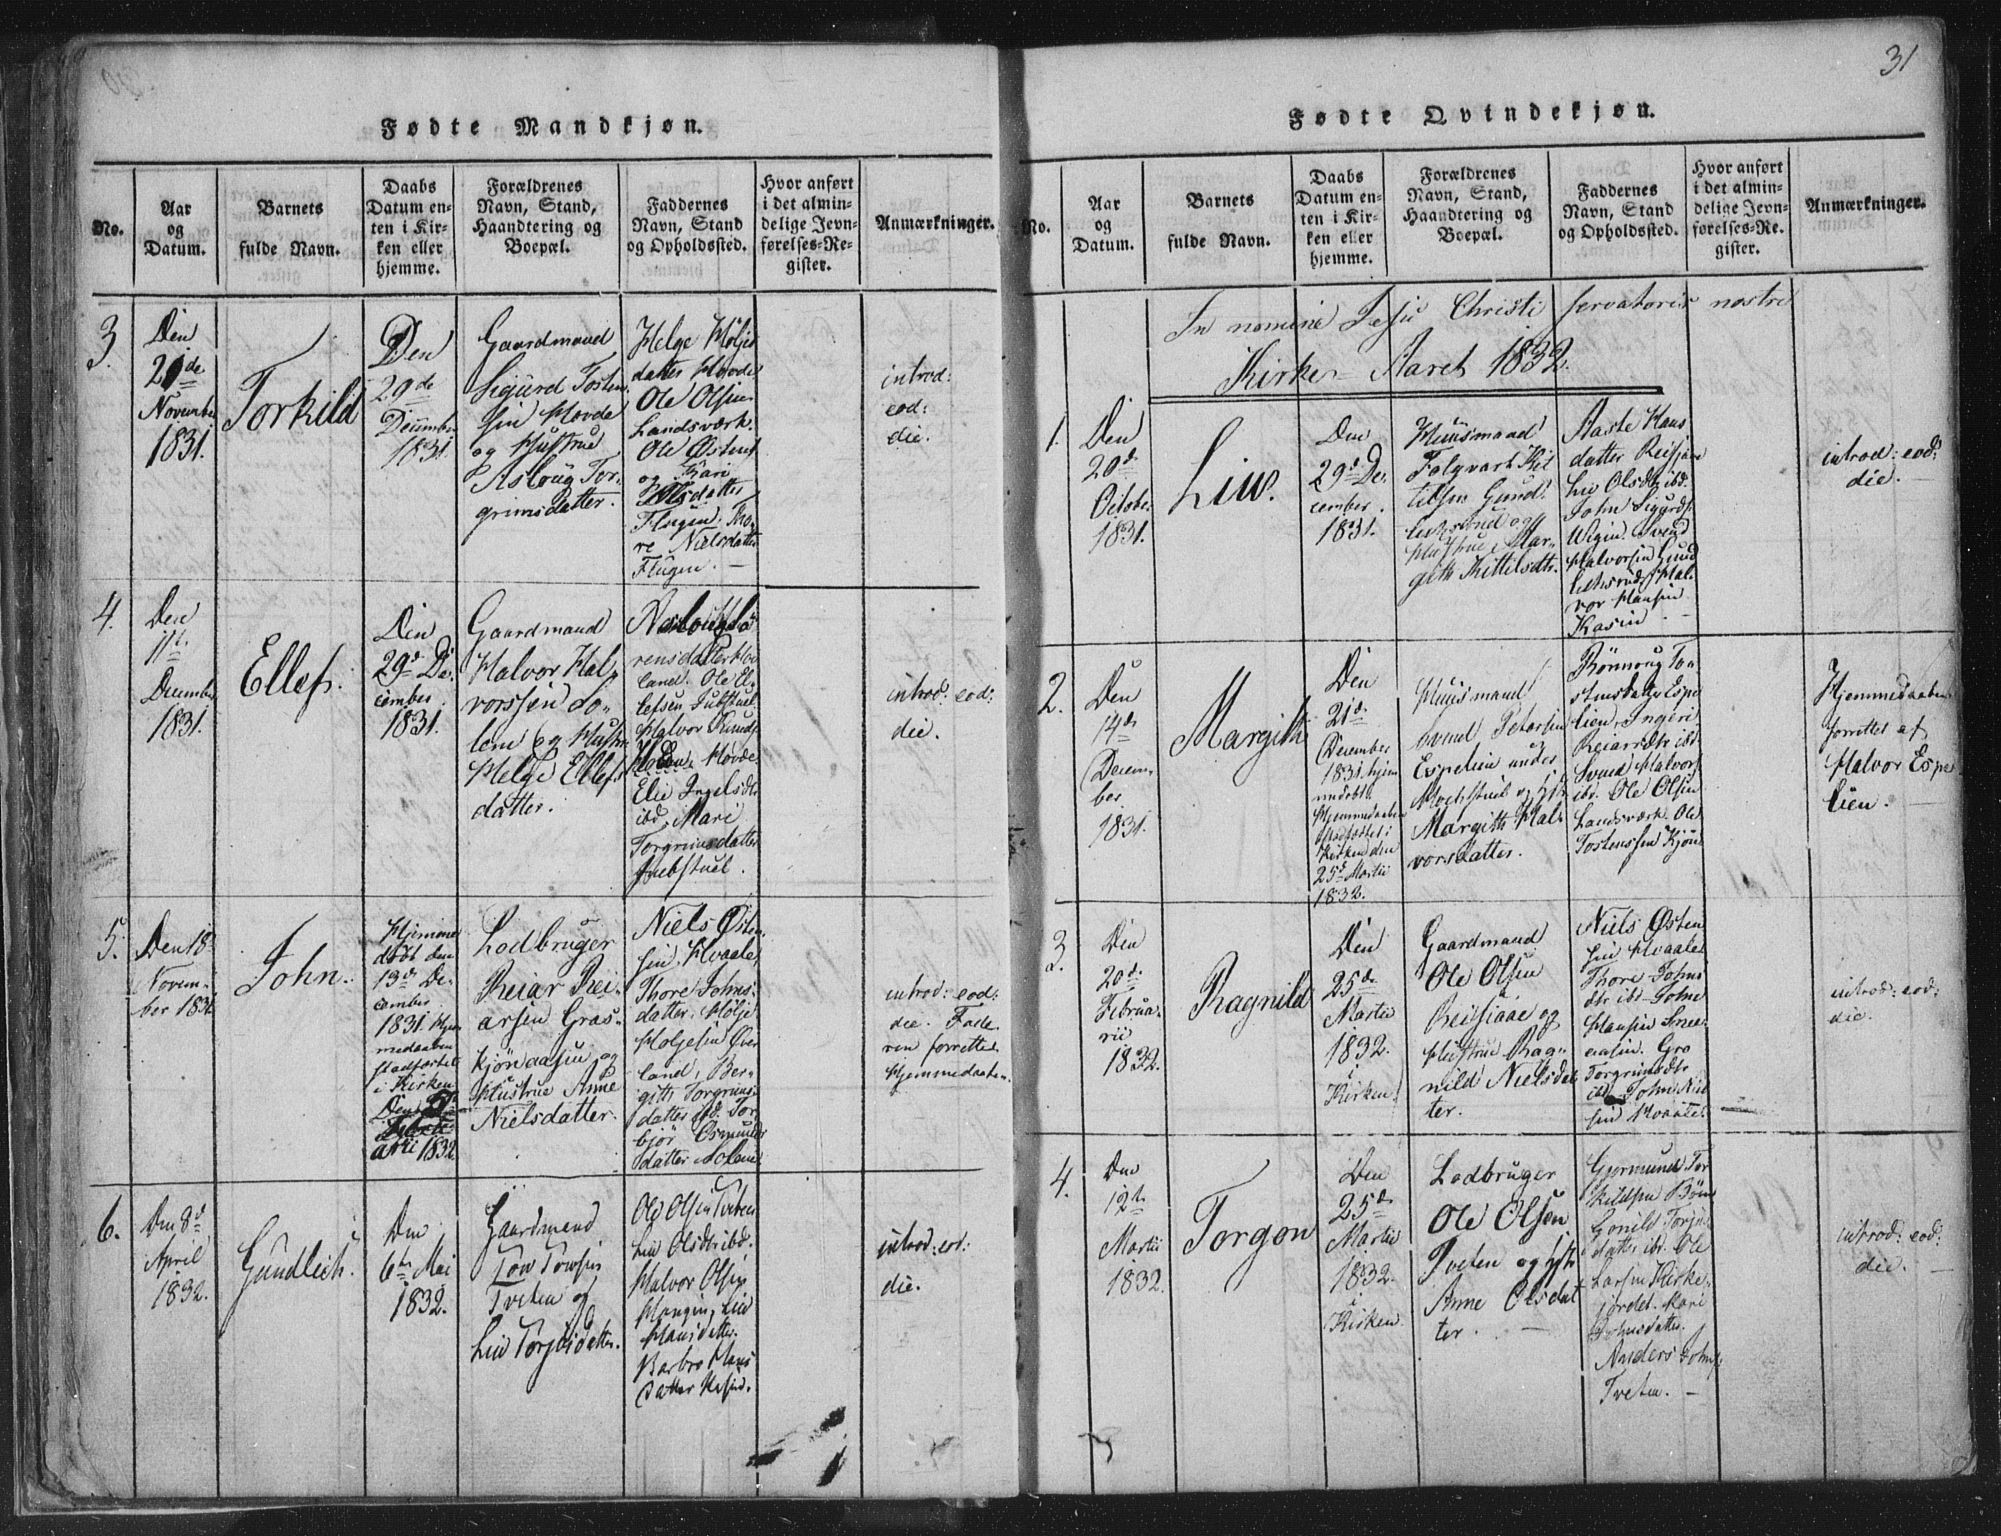 Fødte Mandkjøn.
No.
Aar
og
Datum.
Barnets
fulde Navn.
Daabs
Datum en-
ten i Kir-
ken eller
hjemme.
Forældrenes
Navn, Stand,
Haandtering og
Boepæl.
Faddernes
Navn, Stand
og Opholdssted.
Hvor anført
i det almin-
delige Jevn-
førelses-Re-
gister.
Anmærkninger.
3.
Den
29de
November
1831.
Torkild
Den
29de
December
1831.
Gaardmand
Sigurd Tosten
sen Hovde
og Hustrue
Asloug Tor-
grimsdatter.
Helge Holjes
datter Hovde
Ole Olsen
Landsværk.
Ole Østens
og Kari
Olsdatter
Flugen. Tho-
re Nielsdatter
Flugen. —
introd:
eod:
die.
4.
Den
11te
December
1831.
Ellef.
Den
29de De-
cember
1831.
Gaardmand
Halvor Hal-
vorssen So-
lem og Hustru
Helge Ellefs
datter.
rensdatter Ho-
land. Ole El-
lefsen Jubstuel.
Halvor Knuds
Hovde
Elie Ingelsdtr
ibd. Mari
Torgrimsdatter
Jubstuel.
introd: eod:
die.
5.
Den 18
Novem-
ber 1831
John.
Hjemme
døbt den
13de De-
cember
1831. Hjem
medaaben
stadfæstet
i Kirken
Den
arii 1832
Lodbruger
Reiar Rei-
arsen Gras-
kjøn og
Hustrue Anne
Nielsdatter.
Niels Østen
sen Hvaale,
Thore Johns-
datter. Holje
Holjesen Øver
land, Ber-
gith Torgrims-
datter ibd. Tor-
bjør Osmunds
datter Solem
introd: eod:
die. Fade-
ren forrettede
Hjemmedaaben.
6.
Den 8de
April
1832.
Gundleich.
Den
6te Mai
1832.
Gaardmand
Tov Tovsen
Tveten og
Liv Torjusdatter.
Ole Olsen Tveten
Liv Olsdtr ibd.
Halvor Olsen
Liv
Hansdatter.
Barbro Hans
datter
introd: eod:
die.
31
Fødte Qvindekjøn.
No.
Aar
og
Datum.
Barnets
fulde Navn.
Daabs
Datum en-
ten i Kir-
ken eller
hjemme.
Forældrenes
Navn, Stand,
Haandtering og
Boepæl.
Faddernes
Navn, Stand
og Opholdssted.
Hvor anført
i det almin-
delige Jevn-
førelses-Re-
gister.
Anmærkninger.
In nomine Jesu Christi servatoris nostri
Kirke-Aaret 1832.
1.
Den
20de
Octobr.
1831.
Liv.
Den
29de De-
cember.
1831.
Huusmand
Folqvart Kit
tilsen Gund-
leiksrud og
Hustrue Mar-
gith Kittilsdtr.
Aaste Hans
datter
Liv Olsdtr ibd.
John Sigurds.
Svend
Halvorsen Gund
leiksrud, Hal-
vor Hansen
Kasin. —
introd: eod:
die. —
2.
Den
14de
Decem-
ber
1831.
Margith
Den
21de
December
1831. hjem
medøbt.
Hjemmedaaben
stadfæstet i
Kirken den
25de Martii
1832.
Huusmand
Svend Petersen
Espelien under
Margith Hal-
vorsdatter.
Børnoug To-
stensdatter Espe
lien, Ingeri
Reiarsdtr ibd.
Svend Halvors
ibd. Ole Olsen
Landsværk. Ole
Tostenssen
Hjemmedaaben
forrettet af
Halvor Espe
lien. —
3.
Den
20de
Februa-
rii
1832.
Ragnild
Den
25de
Martii
1832.
i
Kirken.
Gaardmand
Ole Olsen
Reisiaae og
Hustrue Rag-
nild Nielsdat
ter.
Niels Østen
sen Hvaale.
Thore Johns
dtr ibd. John
Hansen
Gro
Torgrimsdtr
ibd. John Niel
sen Hvaale.
introd: eod:
die.
4.
Den
12te
Martii
1832.
Torgon
Den
25de
Martii
1832.
i
Kirken.
Lodbruger
Ole Olsen
Tveten og Hst
Anne Olsdat
ter. —
Gjermund Tor
kildsen Bøen
Gonild Torju
datter ibd. Ole
Larsen Kirke-
jordet. Mari
Johnsdatter.
Anders Johns
Tveten. —
introd: eod:
die. —